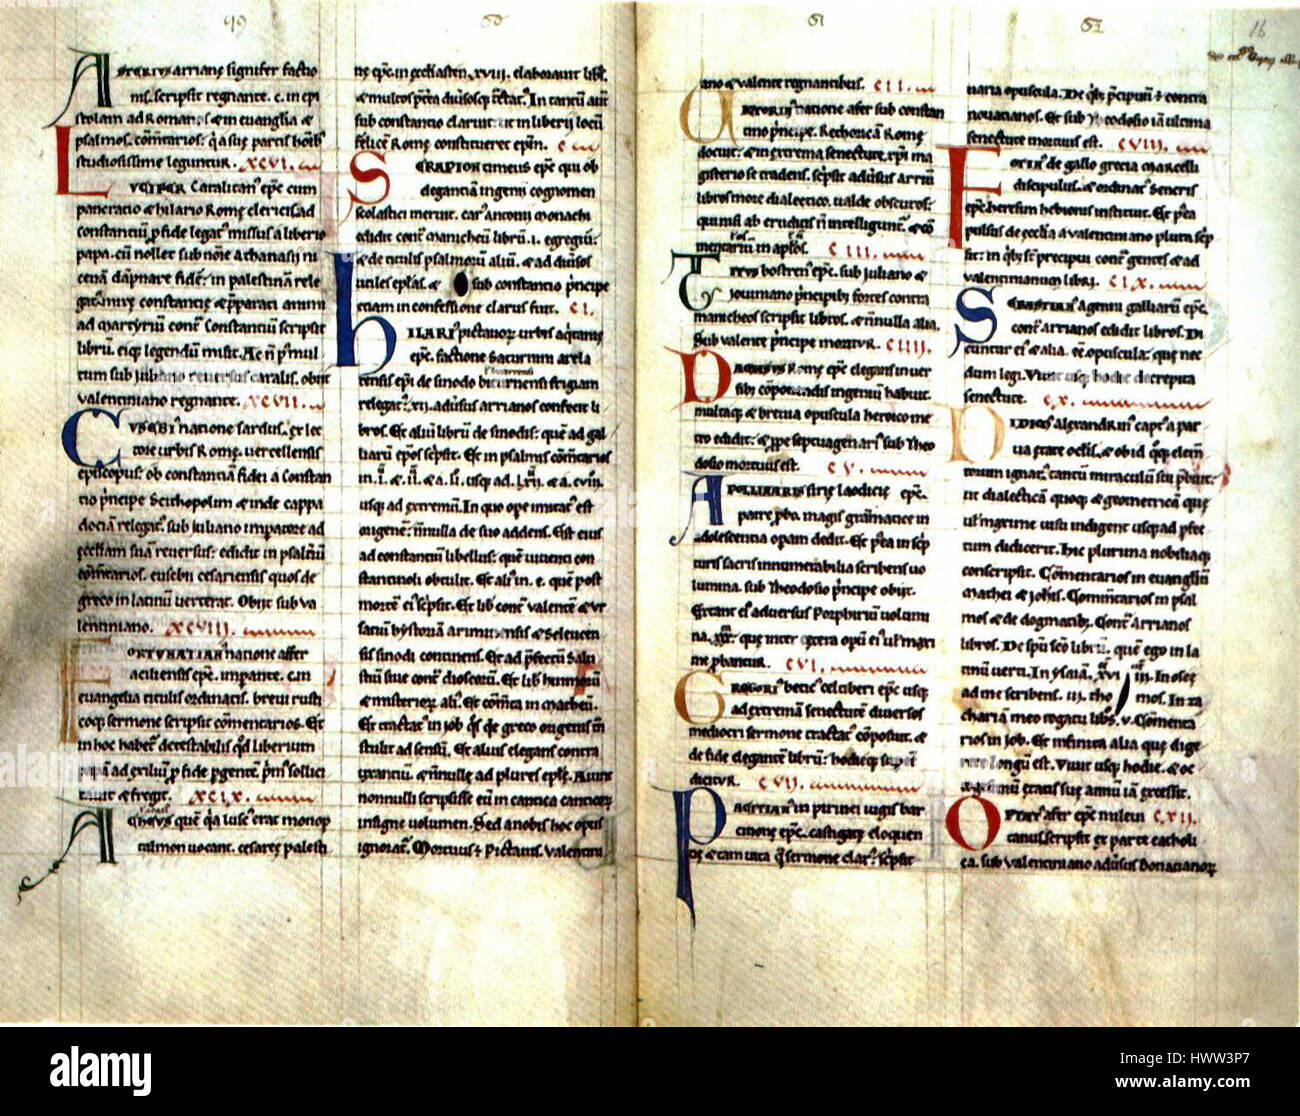 49
50
51
52
16
Asterius arrianę signifer factio
nis. scripsit regnante. c. in epi
stolam ad Romanos & in euanglia &
psalmos. cōmtarios. qui a suę partis
studiosissime leguntur. XCVI.
Lucifer Caralitan' epc cum
pancratio & hilario Romę clericis. ad
constantiū p fide legat' missus a liberio
papa. cū nollet sub noīe athanasii ni
cenā dāpnare fidē: in palestinā rele
gat'. mirę constantię & pparati animi
ad martyriū. cont constantiū scripsit
librū. eiq; legendū misit. Ac ñ p' mul
tum sub Juliano reuersus caralis. obiit
valentiniano regnante. XCVII.
Eusebi' natione sardus. ex lec
tore urbis Romę. uercellensis
episcopus. ob constantiā fidei a Constan
tio principe Scithopolim & inde cappa
dociā relegat'. sub Juliano impatore ad
ęccłiam suā reuersus: edidit in psalmū
cōmtarios. eusebii cesariensis quos de
greco in latinū uerterat. Obiit sub va
lentiniano. XCVIII.
Fortunatian' natione affer
aciliensis epc. impante. c. in
euangelia titulis ordinatis. breui rusti
coq; sermone scripsit cōmentarios. Et
in hoc habet' detestabilis qd liberium
papā ad exiliū p fide pgentē. prim' sollici
tauit & fregit. XCIX.
Acheus quē
talmon uocant. cesaree palesti
nę epc. in ęccliasten. XVIII. elaborauit
& multos pterea
sub constantio claruit. ut in liberii locū
felicē Romę constitueret epm. C
Serapion timeus epc qui ob
elegantiam ingenii cognomen
scolastici meruit. car' antonii monachi
edidit cont manicheū librū. i. egregiū:
& de titulis psalmorū aliū. & ad diuisos
utiles eplas. & sub constantio principe
etiam in confessione clarus fuit. CI.
Hilari' pictauorum urbis aquitanię
epc. factione saturnini arela
tensis epi de sinodo biturrensi frigiam
relegat'. XII. aduisus arrianos confecit li
bros. Et aliū librū de sinodis: quē ad gal
liarū epos scripsit. Et in psalmis cōmtarios
in. I. & II. & a. LI. usq; ad. LXII. & a. CVIII.
usq; ad extremū. In quo ope imitat' est
origenē: ñnulla de suo addens. Est eius
ad constantiū libellus: quē uiuenti con
stantinoli obtulit. Et ali' in. c. quē post
mortē ei' scripsit. Et lib cont valentē & ur
saciū hystoriā ariminensis & Seleucen
sis sinodi continens. Et ad pfectū Salu
stiū siue cont dioscorū. Et lib himnorū
& misterior' ali'. Et cōmta in matheū.
Et tractat' in iob qs de greco origenis
stulit ad sensū. Et alius elegans contra
& ñnullę ad plures epłę. Aiunt
nonnulli scripsisse eū in cantica canticorum
insigne uolumen. Sed a nobis hoc opus
ignorat'. Mortuus ē Pictauis. valentini
ano & valente regnantibus. CII.
Victorin' natione afer sub constan
tino principe. Rethoricā Romę
docuit: & in extrema senectute. xpi ma
gisterio se tradens. scripsit aduisus arriū
libros more dialectico. ualde obscuros:
qui nisi ab eruditis ñ intelligunt'. & cō
mentariū in aplos. CIII.
Titus bostren' epc. sub Juliano &
Jouiniano principib; fortes contra
manicheos scripsit libros. & ñnulla alia.
Sub valente principe moritur. CIIII.
Damasus Romę epc elegans in uer
sib; cōponendis ingeniū habuit.
multaq; & breuia opuscula heroico me
tro edidit: & ppe septuagenari' sub Theo
dosio mortuus est. CV.
Apollinaris sirię laodicię epc.
patre pbo. magis grāmaticę in
adolescentia opam dedit. Et ptea in scrip
turis sacris innumerabilia scribens uo
lumina. sub Theodosio principe obiit.
Extant ei' aduersus Porphiriū uolumi
na. XXX: quę inter cetera opū ei' uel' maxi
me pbantur. CVI.
Gregori' betic' celiberi epc usq;
ad extremā senectutē diuersos
mediocri sermone tractat' cōposuit. &
de fide elegante librū: hodieq; supesse
dicitur. CVII.
Pacian' in pirinei iugis bar
cinonę epc. castigatę eloquen
tię & tam uita qm sermone clar'. scripsit
uaria opuscula. De qb; est contra
nouacianos. Et sub Theodosio iā ultima
senectute mortuus est. CVIII.
Fotin' de gallo grecia marcelli
discipulus. & ordinat' Seneris
epc. heresim hebionis instituit. Et ptea
pulsus de ecclia a valentiniano plura scrip
sit: in qb; st precipui contra gentes & ad
valentinianum libri. CIX.
Sebastian' Agenni galliarū epc.
cont arrianos edidit libros. Di
cuntur ei' & alia. ēē opuscula: quę nec
dum legi. Viuit usq; hodie decrepita
senectute. CX.
Didimus alexandrin' capt' a par
ua etate oclis. & ob id quoq; elem
torum ignar'. tantū miraculū sui pbuit:
ut dialecticā quoq; & geometricā quę
uel maxime uisu indigent usq; ad pfec
tum didicerit. Hic plurima nobiliaq;
conscripsit. Cōmentarios in euanglium
mathei & iohis. Cōmentarios in psal
mos & de dogmatib;. Cont Arrianos
libros. De spū scō librū. quē ego in la
tinū uerti. In ysaiā. XVIII. In oseę
ad me scribens. III. thomos. In za
chariā meo rogatu libros. V. Cōmenta
rios in iob. Et infinita alia quę dige
rere longū est. Viuit usq; hodie. & oc
etatis suę annū iā excessit.
Optat' afer epc mileui CXII.
tanus. scripsit ex parte catholi
ca. sub valentiniano aduisus Donacianorum
alamy
HWW3P7
www.alamy.com